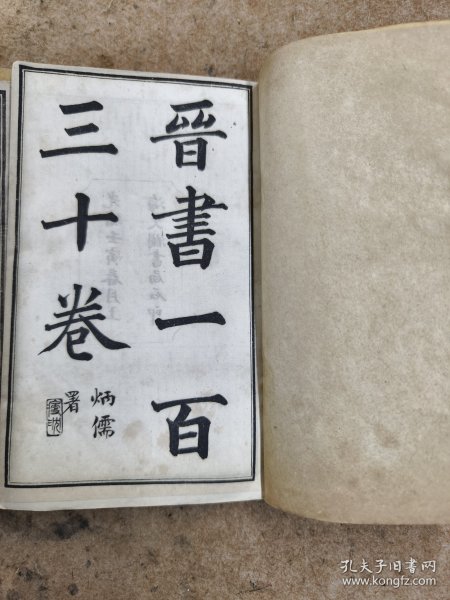 晉書一百
三十卷
炳儒
署
孔夫子旧书网
www.kongfz.com